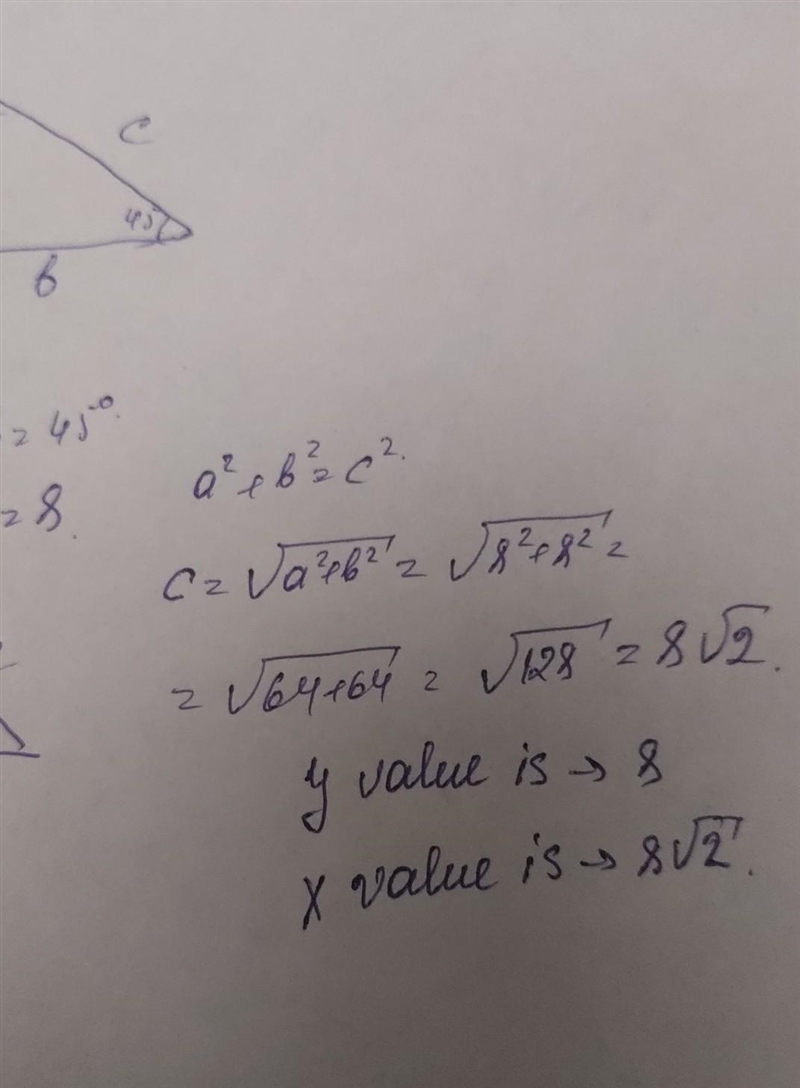 c
45
b
= 45°.
= 8.
a² + b² = c².
c = √a²+b² = √8²+8² =
= √64+64 = √128 = 8√2.
y value is → 8
x value is → 8√2.